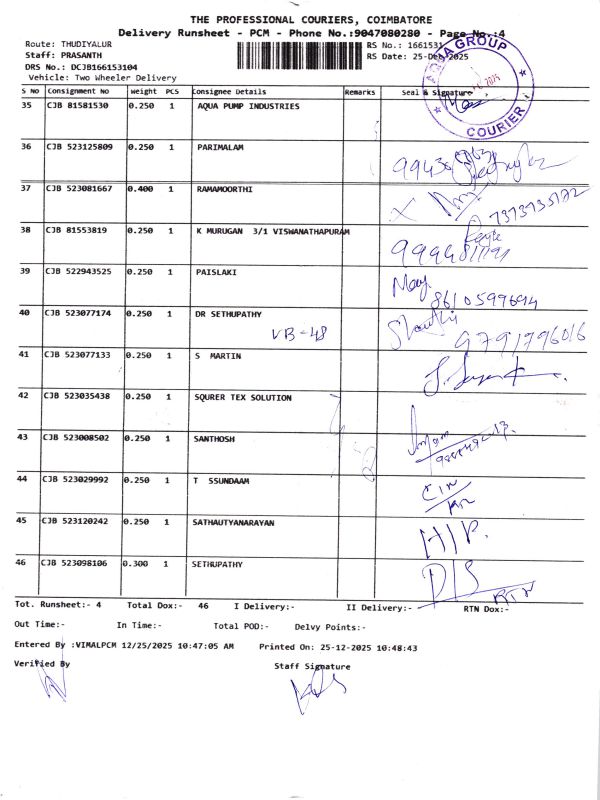 THE PROFESSIONAL COURIERS, COIMBATORE
Delivery Runsheet - PCM - Phone No.:9047080280 - Page No.:4
Route: THUDIYALUR RS No.: 1661531
Staff: PRASANTH RS Date: 25-Dec-2025
DRS No.: DCJB166153104
Vehicle: Two Wheeler Delivery
AQUA GROUP
COURIER
S NO Consignment No Weight PCS Consignee Details Remarks Seal & Signature
35 CJB 81581530 0.250 1 AQUA PUMP INDUSTRIES
36 CJB 523125809 0.250 1 PARIMALAM
37 CJB 523081667 0.400 1 RAMAMOORTHI
38 CJB 81553819 0.250 1 K MURUGAN 3/1 VISWANATHAPURAM
39 CJB 522943525 0.250 1 PAISLAKI
8610599694
40 CJB 523077174 0.250 1 DR SETHUPATHY
VB-48
9791796016
41 CJB 523077133 0.250 1 S MARTIN
42 CJB 523035438 0.250 1 SQURER TEX SOLUTION
43 CJB 523008502 0.250 1 SANTHOSH
44 CJB 523029992 0.250 1 T SSUNDAAM
45 CJB 523120242 0.250 1 SATHAUTYANARAYAN
46 CJB 523098106 0.300 1 SETHUPATHY
D/S
RTN
Tot. Runsheet:- 4 Total Dox:- 46 I Delivery:- II Delivery:- RTN Dox:-
Out Time:- In Time:- Total POD:- Delvy Points:-
Entered By :VIMALPCM 12/25/2025 10:47:05 AM Printed On: 25-12-2025 10:48:43
Verified By Staff Signature